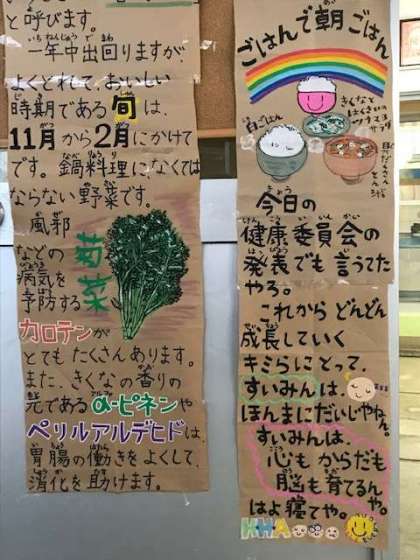 と呼びます。
一年中出回りますが
よくとれて、おいしい
時期である旬は、
11月から2月にかけて
です。鍋料理になくては
ならない野菜です。
菊菜
風邪
などの
病気を
予防する
カロテンが
とてもたくさんあります。
また、きくなの香りの
元であるα-ピネンや
ペリルアルデヒドは、
胃腸の働きをよくして、
消化を助けます。
ごはんで朝ごはん
白ごはん
きくなと
はくさいの
サラダ
とん汁
今日の
健康委員会の
発表でも言うてた
やろ。
これからどんどん
成長していく
キミらにとって、
すいみんは
ほんまにだいじやねん。
すいみんは、
心もからだも
脳も育てるんや。
はよ寝てや。